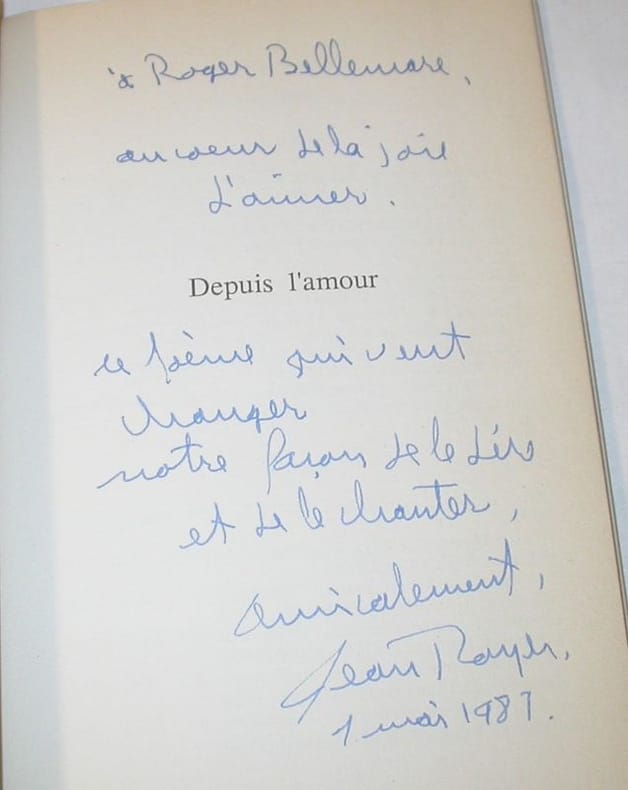 à Roger Bellemare,
au coeur de la joie
d'aimer.
Depuis l'amour
ce poème qui veut
changer
notre façon de le dire
et de le chanter,
amicalement,
Jean Royer,
1 mai 1987.